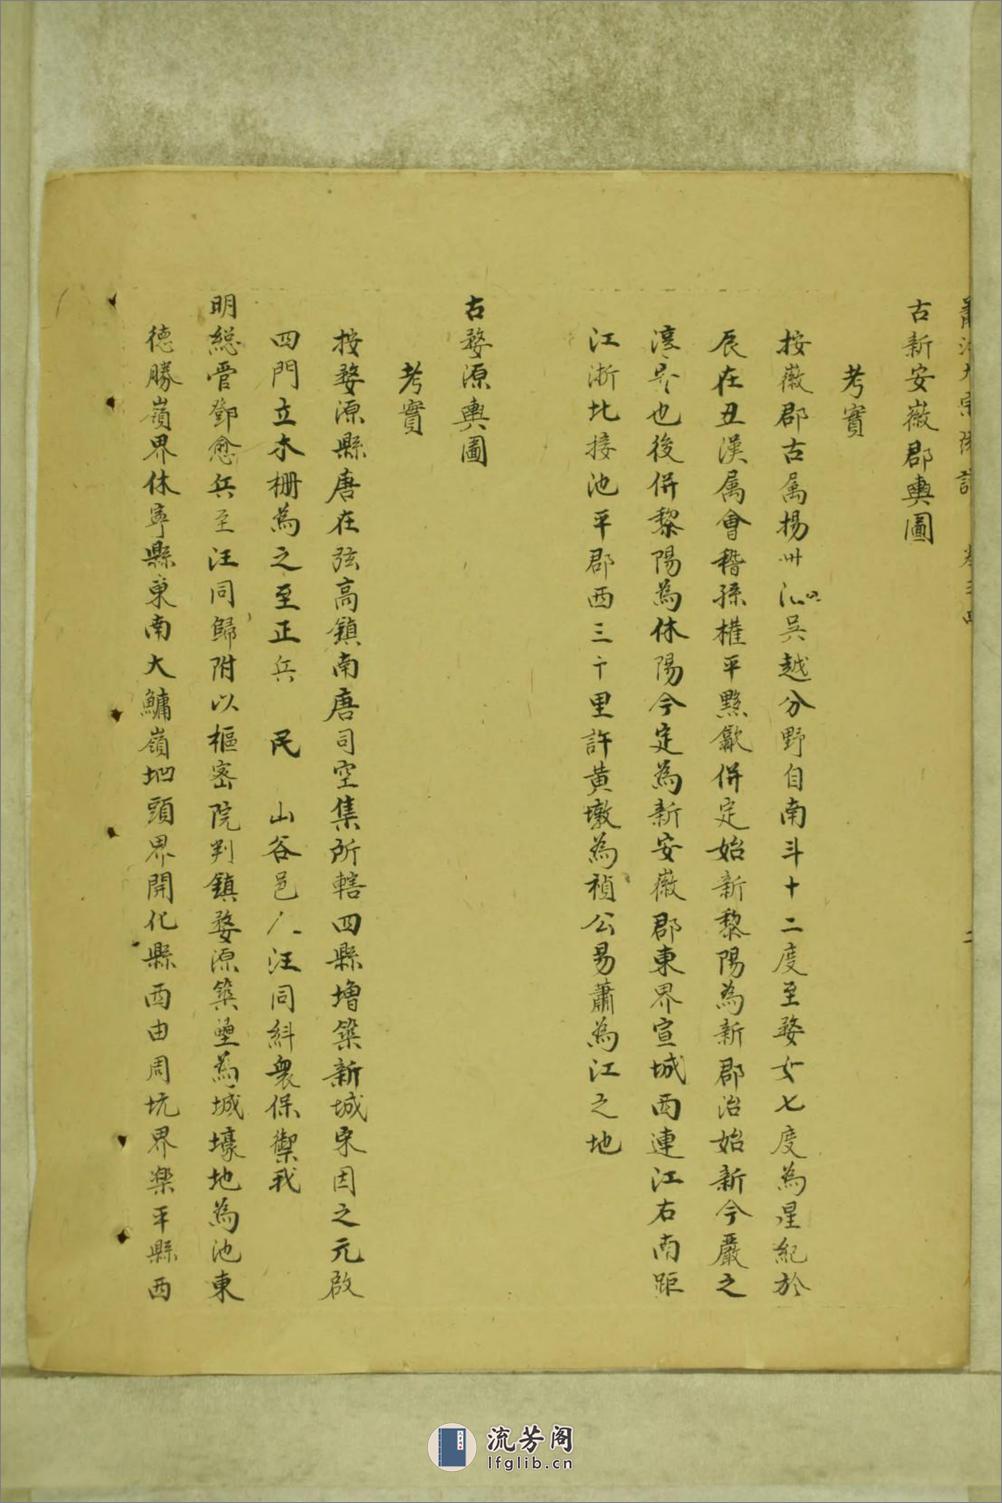 古新安徽郡輿圖
考實
按徽郡古属揚州吳越分野自南斗十二度至婺女七度為星紀於
辰在丑漢属會稽孫權平黟歙併定始新黎陽為新郡治始新今嚴之
淳也後併黎陽為休陽今定為新安徽郡東界宣城西連江右南距
江浙北接池平郡西三十里許黄墩為禎公易蕭為江之地
古婺源輿圖
考實
按婺源縣唐在弦高鎮南唐司空集所轄四縣增築新城宋因之元啟
四門立木柵為之至正兵 民 山谷邑人汪同糾衆保禦我
明総管鄧愈兵至汪同歸附以樞密院判鎮婺源築壘為城壕地為池東
德勝嶺界休寧縣東南大鱅嶺地頭界開化縣西由周坑界楽平縣西
流芳阁
lfglib.cn